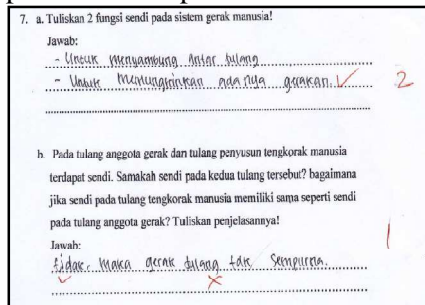 7. a. Tuliskan 2 fungsi sendi pada sistem gerak manusia!
Jawab:
- Untuk menyambung antar tulang
- Untuk memungkinkan adanya gerakan. ✓
2
b. Pada tulang anggota gerak dan tulang penyusun tengkorak manusia
terdapat sendi. Samakah sendi pada kedua tulang tersebut? bagaimana
jika sendi pada tulang tengkorak manusia memiliki sama seperti sendi
pada tulang anggota gerak? Tuliskan penjelasannya!
1
Jawab:
tidak. Maka gerak tulang tdk sempurna.